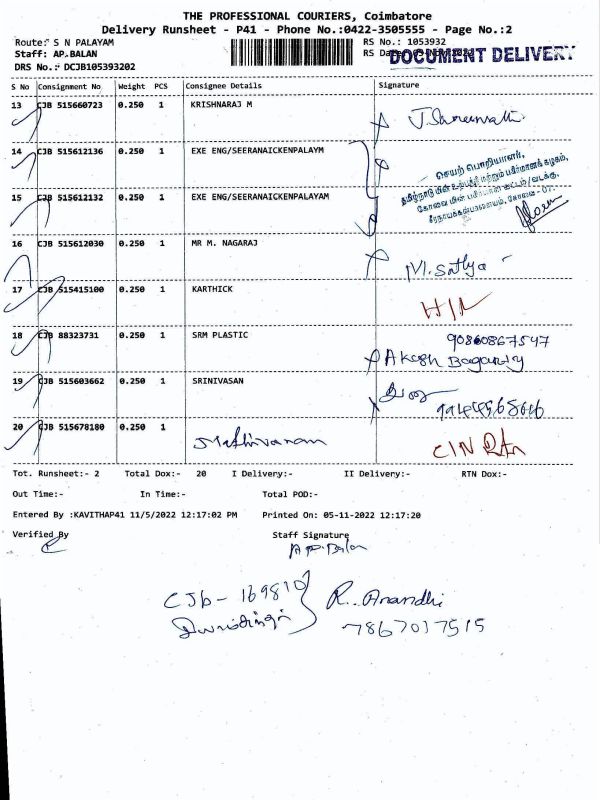 THE PROFESSIONAL COURIERS, Coimbatore
Delivery Runsheet - P41 - Phone No.:0422-3505555 - Page No.:2
Route: S N PALAYAM
RS No.: 1053932
Staff: AP.BALAN
RS Date:
DOCUMENT DELIVERY
DRS No.: DCJB105393202
S No Consignment No Weight PCS Consignee Details Signature
13 CJB 515660723 0.250 1 KRISHNARAJ M
14 CJB 515612136 0.250 1 EXE ENG/SEERANAICKENPALAYM
செயற் பொறியாளர்,
15 CJB 515612132 0.250 1 EXE ENG/SEERANAICKENPALAYAM
16 CJB 515612030 0.250 1 MR M. NAGARAJ M. Sathya
17 CJB 515415100 0.250 1 KARTHICK
18 CJB 88323731 0.250 1 SRM PLASTIC
9080867547
Akash
19 CJB 515603662 0.250 1 SRINIVASAN
20 CJB 515678180 0.250 1
Tot. Runsheet:- 2 Total Dox:- 20 I Delivery:- II Delivery:- RTN Dox:-
Out Time:- In Time:- Total POD:-
Entered By :KAVITHAP41 11/5/2022 12:17:02 PM Printed On: 05-11-2022 12:17:20
Verified By Staff Signature
A.P.Balan
CJb - 169810 R. Anandhi
7867017515